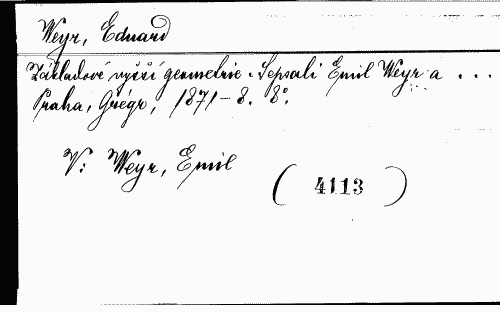 Weyr, Eduard
Základové vyšší geometrie. Sepsali Emil Weyr a ...
Praha, Grégr, 1871-8. 8°.
V: Weyr, Emil
(4113)